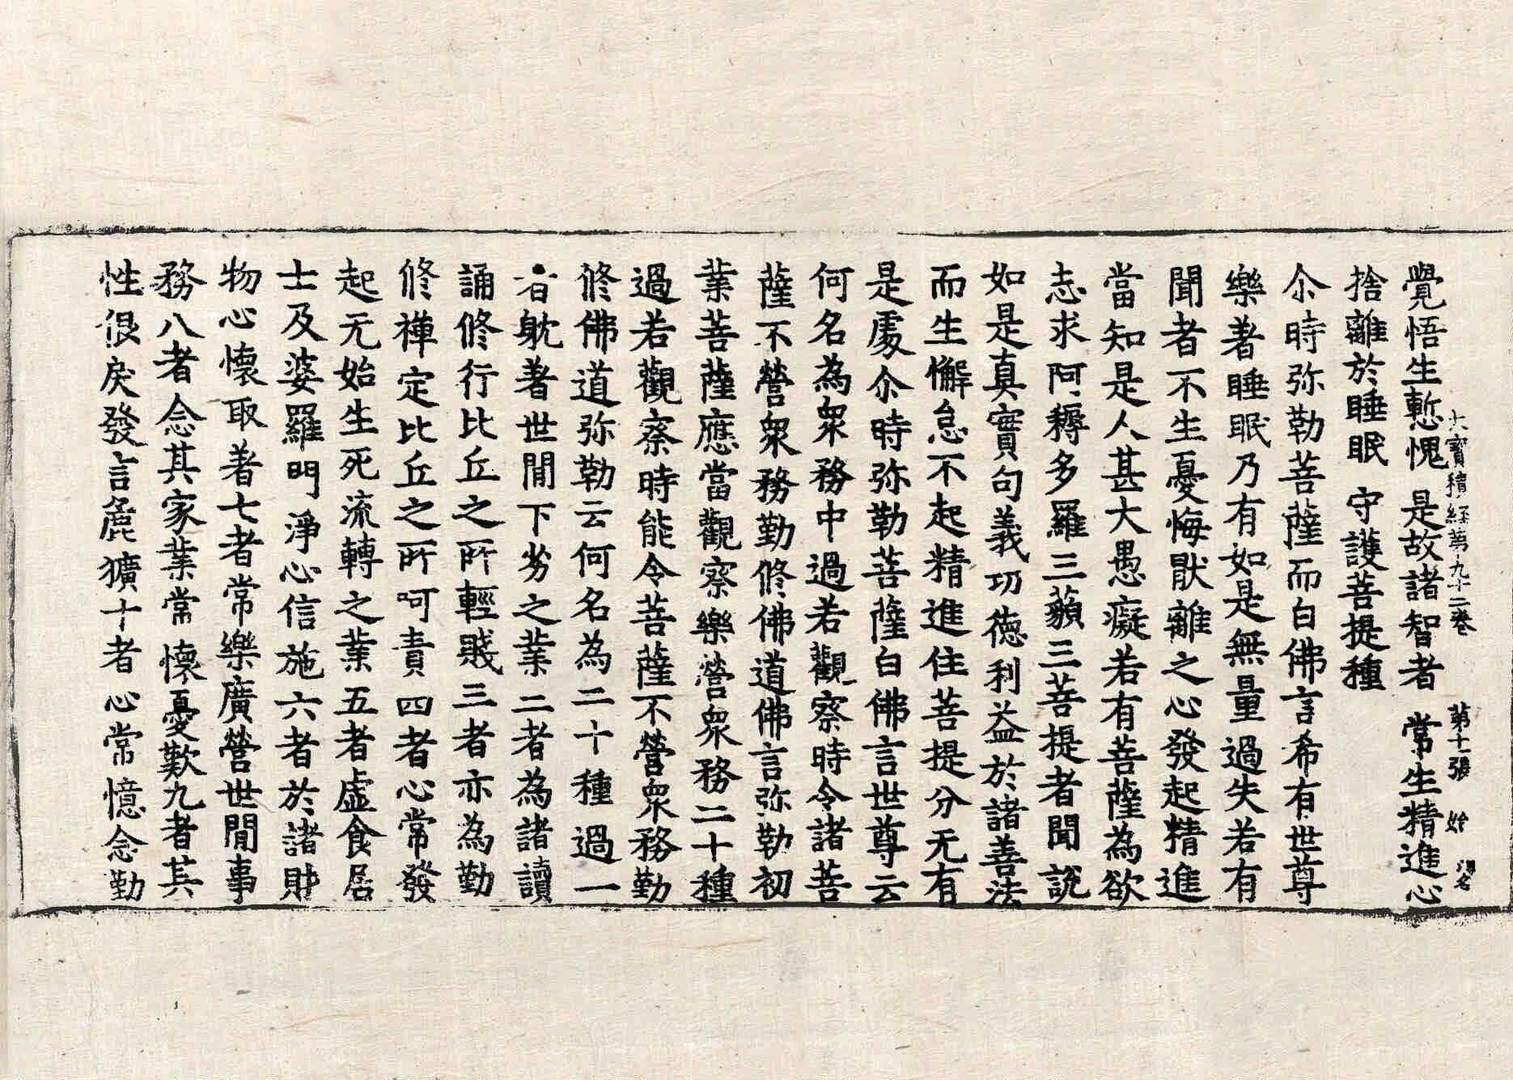 大寶積經第九十二卷 第十一張 始
覺悟生慙愧 是故諸智者 常生精進心
捨離於睡眠 守護菩提種
尒時弥勒菩薩而白佛言希有世尊
樂著睡眠乃有如是無量過失若有
聞者不生憂悔猒離之心發起精進
當知是人甚大愚癡若有菩薩為欲
志求阿耨多羅三藐三菩提者聞說
如是真實句義功德利益於諸善法
而生懈怠不起精進住菩提分无有
是處尒時弥勒菩薩白佛言世尊云
何名為衆務中過若觀察時令諸菩
薩不營衆務勤修佛道佛言弥勒初
業菩薩應當觀察樂營衆務二十種
過若觀察時能令菩薩不營衆務勤
修佛道弥勒云何名為二十種過一
者躭著世閒下劣之業二者為諸讀
誦修行比丘之所輕賤三者亦為勤
修禪定比丘之所呵責四者心常發
起无始生死流轉之業五者虛食居
士及婆羅門淨心信施六者於諸財
物心懷取著七者常樂廣營世閒事
務八者念其家業常懷憂歎九者其
性很戾發言麁獷十者心常憶念勤